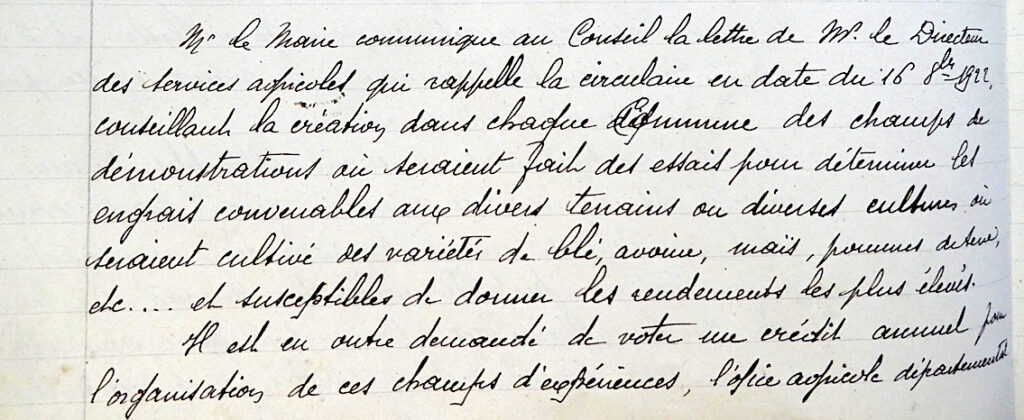 Mr le Maire communique au Conseil la lettre de Mr. le Directeur
des services agricoles qui rappelle la circulaire en date du 16 8bre 1922,
conseillant la création dans chaque Commune des champs de
démonstrations où seraient fait des essais pour déterminer les
engrais convenables aux divers terrains ou diverses cultures où
seraient cultivé des variétés de blé, avoine, maïs, pommes de terre,
etc.... et susceptibles de donner les rendements les plus élevés.
Il est en outre demandé de voter un crédit annuel pour
l'organisation de ces champs d'expériences, l'office agricole départemental